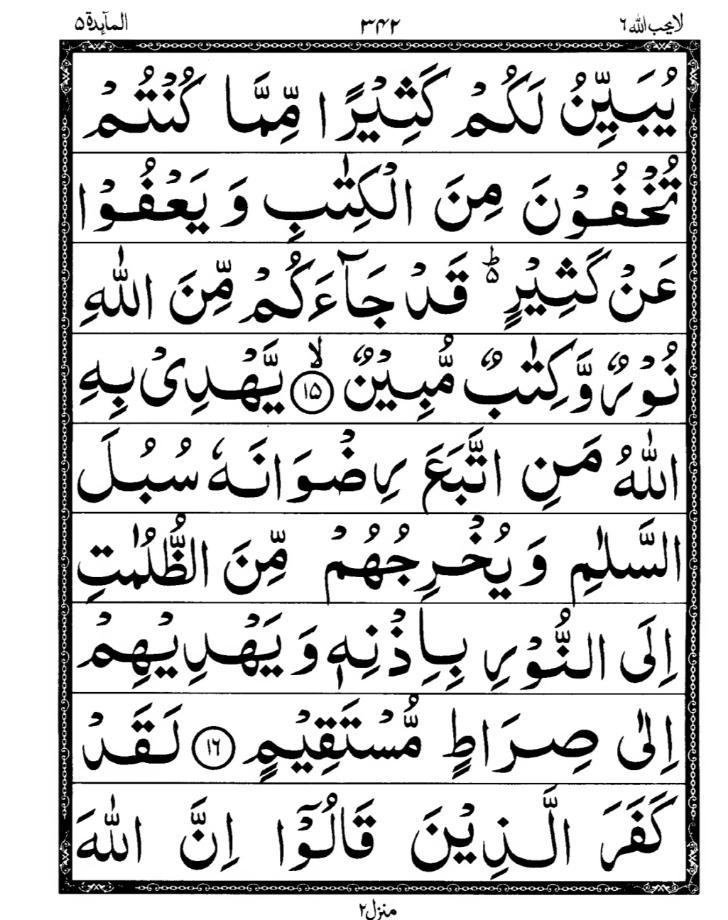 لایحب الله ٦ ٣۴٢ المآبدة ۵
یُبَیِّنُ لَكُمْ كَثِیْرًا مِّمَّا كُنْتُمْ
تُخْفُوْنَ مِنَ الْكِتٰبِ وَ یَعْفُوْا
عَنْ كَثِیْرٍ ؕ قَدْ جَآءَكُمْ مِّنَ اللّٰهِ
نُوْرٌ وَّ كِتٰبٌ مُّبِیْنٌ ۙ﴿۱۵﴾ یَّهْدِیْ بِهِ
اللّٰهُ مَنِ اتَّبَعَ رِضْوَانَهٗ سُبُلَ
السَّلٰمِ وَ یُخْرِجُهُمْ مِّنَ الظُّلُمٰتِ
اِلَی النُّوْرِ بِاِذْنِهٖ وَ یَهْدِیْهِمْ
اِلٰی صِرَاطٍ مُّسْتَقِیْمٍ ﴿۱٦﴾ لَقَدْ
كَفَرَ الَّذِیْنَ قَالُوْۤا اِنَّ اللّٰهَ
منزل ٢